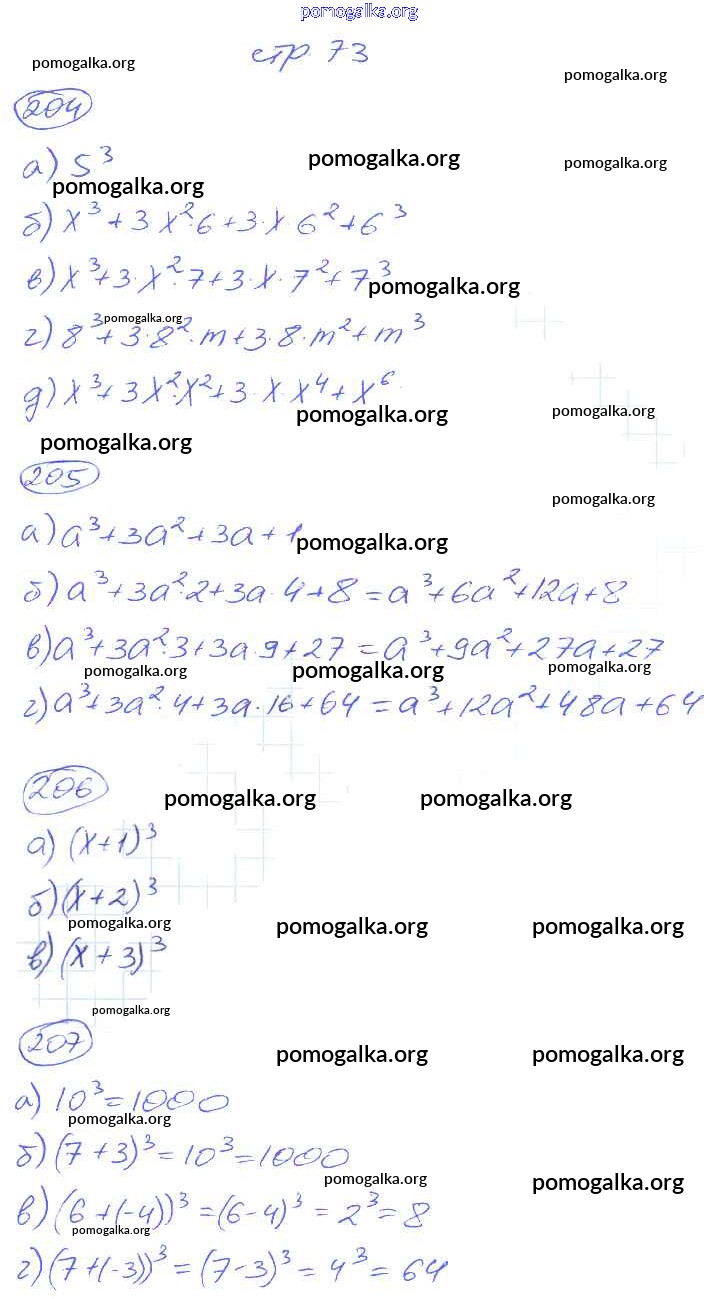 pomogalka.org
стр 73
pomogalka.org
pomogalka.org
204
а) 5³
pomogalka.org
pomogalka.org
pomogalka.org
б) x³ + 3 x²·6 + 3·x·6² + 6³
в) x³ + 3·x²·7 + 3·x·7² + 7³
pomogalka.org
pomogalka.org
г) 8³ + 3·8²·m + 3·8·m² + m³
д) x³ + 3x²·x² + 3·x·x⁴ + x⁶
pomogalka.org
pomogalka.org
pomogalka.org
205
pomogalka.org
а) a³ + 3a² + 3a + 1
pomogalka.org
б) a³ + 3a²·2 + 3a·4 + 8 = a³ + 6a² + 12a + 8
в) a³ + 3a²·3 + 3a·9 + 27 = a³ + 9a² + 27a + 27
pomogalka.org
pomogalka.org
pomogalka.org
г) a³ + 3a²·4 + 3a·16 + 64 = a³ + 12a² + 48a + 64
206
pomogalka.org
pomogalka.org
а) (x+1)³
б) (x+2)³
pomogalka.org
pomogalka.org
pomogalka.org
в) (x+3)³
pomogalka.org
207
pomogalka.org
pomogalka.org
а) 10³ = 1000
pomogalka.org
б) (7+3)³ = 10³ = 1000
pomogalka.org
pomogalka.org
в) (6+(-4))³ = (6-4)³ = 2³ = 8
pomogalka.org
г) (7+(-3))³ = (7-3)³ = 4³ = 64